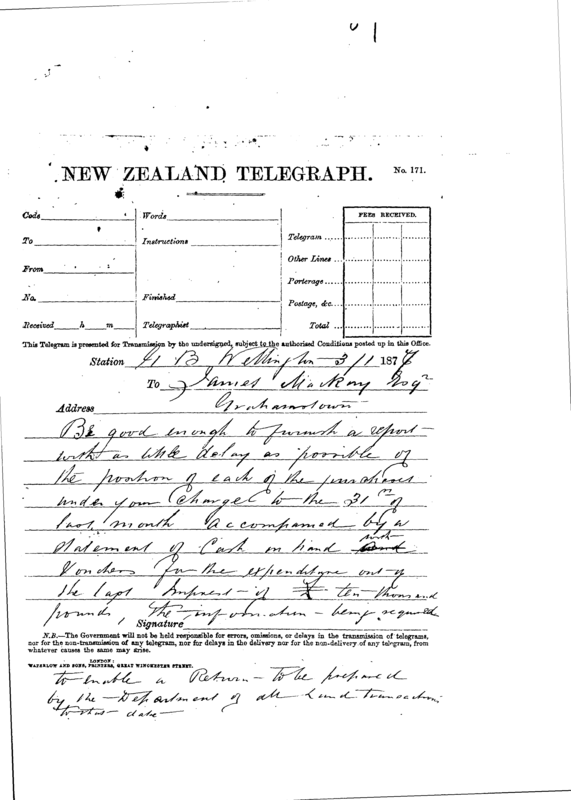 NEW ZEALAND TELEGRAPH. No. 171.
Code
Words
FEES RECEIVED.
To
Instructions
Telegram
Other Lines
From
Porterage
No.
Finished
Postage, &c.
Received h m
Telegraphist
Total
This Telegram is presented for Transmission by the undersigned, subject to the authorised Conditions posted up in this Office.
Station G B Wellington 3/1 187
To James Mackay Esqr
Address Grahamstown
Be good enough to furnish a report
with as little delay as possible of
the position of each of the purchases
under your Charge to the 31 of
last month accompanied by a
Statement of Cash in hand with
Vouchers for the expenditure out of
the last Imprest of £ ten thousand
pounds, The information being required
Signature
N.B.—The Government will not be held responsible for errors, omissions, or delays in the transmission of telegrams,
nor for the non-transmission of any telegram, nor for delays in the delivery nor for the non-delivery of any telegram, from
whatever causes the same may arise.
LONDON:
WATERLOW AND SONS, PRINTERS, GREAT WINCHESTER STREET.
to enable a Return to be prepared
by the Department of all Land transactions
to that date